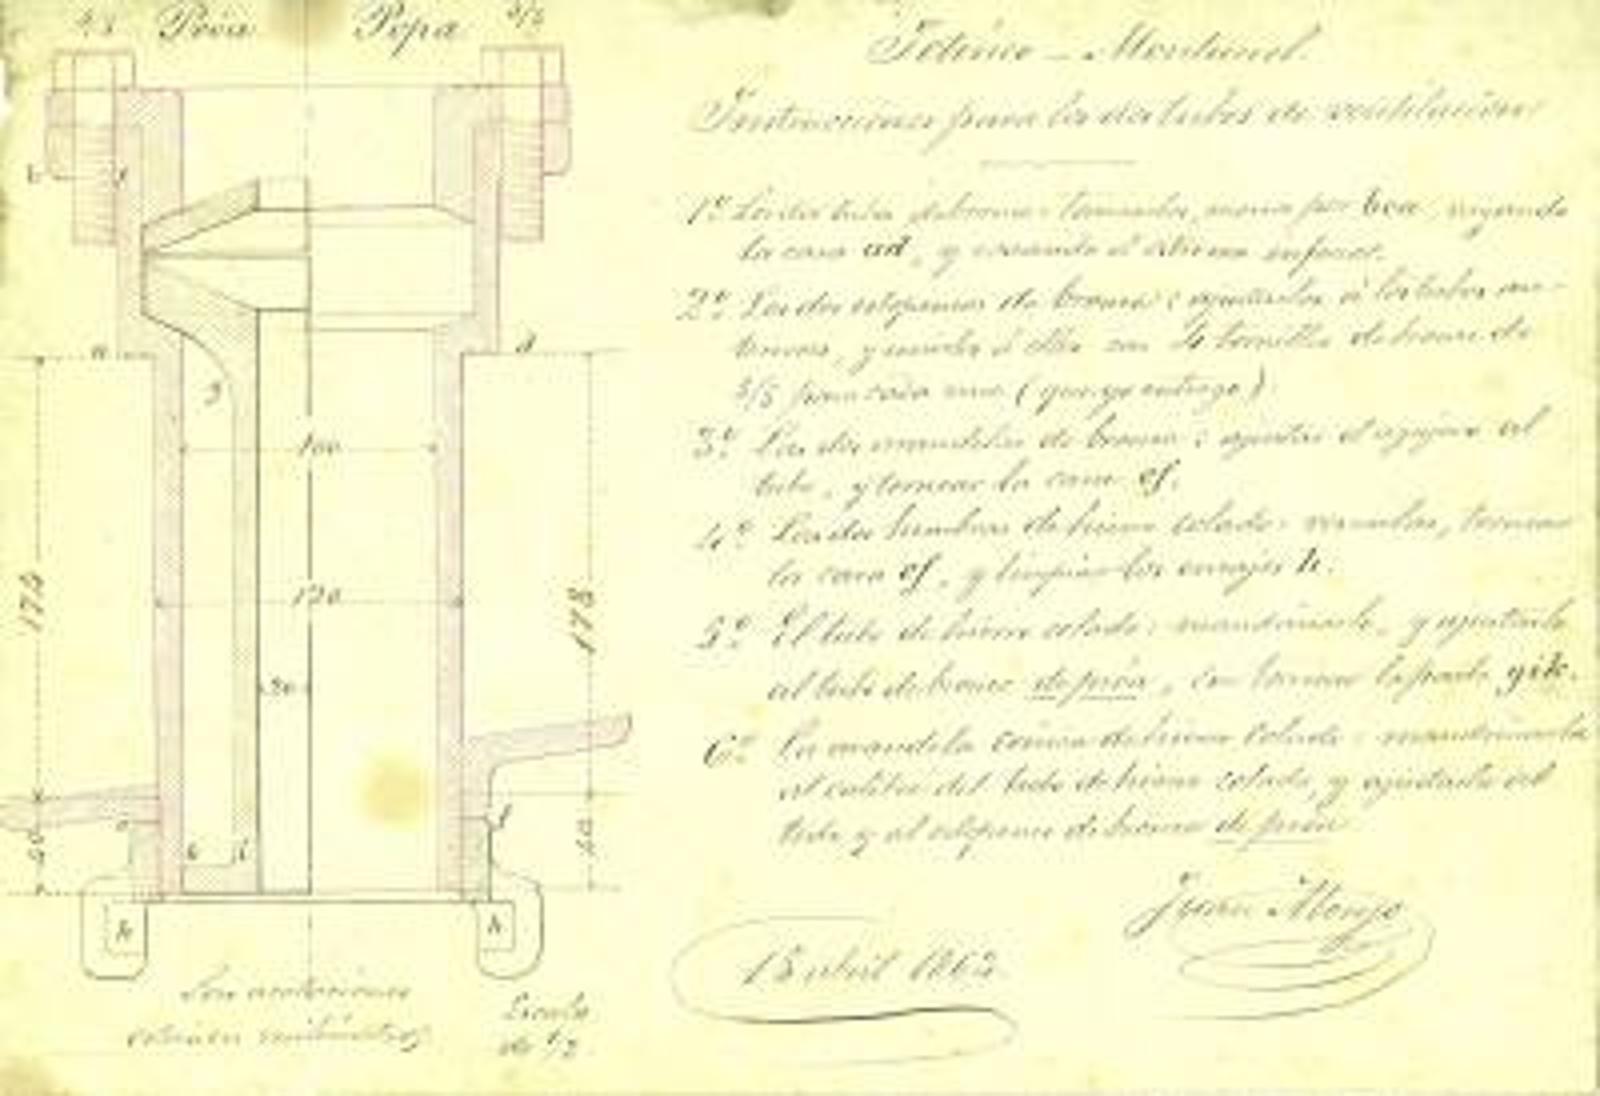 Proa Popa
Ictíneo - Monturiol.
Instrucciones para los dos tubos de ventilación
1º Los dos tubos de bronce: tornearlos, por bca,
la cara ad, y el estremo inferior.
2º Los dos de bronce: ajustarlos á los tubos an-
teriores, y unirlos á ellos con 4 tornillos de bronce de
3/5 para cada uno (que yo entrego)
3º Las dos mandelas de bronce: ajustar el agujero al
tubo, y tornear la cara ef.
4º Las dos lumbreras de hierro colado: tornear
la cara ef, y limpiar los encajes h.
5º El tubo de hierro colado: mandrinarlo, y ajustarlo
al tubo de bronce de proa, sin tornear la parte gik.
6º La mandela cónica de hierro colado: mandrinarla
al calibre del tubo de hierro colado, y ajustarla al
tubo y al de bronce de proa
Juan Monjo
15 abril 1863
a
d
g
100
120
30
170
178
f
k i
h
h
Las acotaciones
están en milímetros
Escala
de 1/2